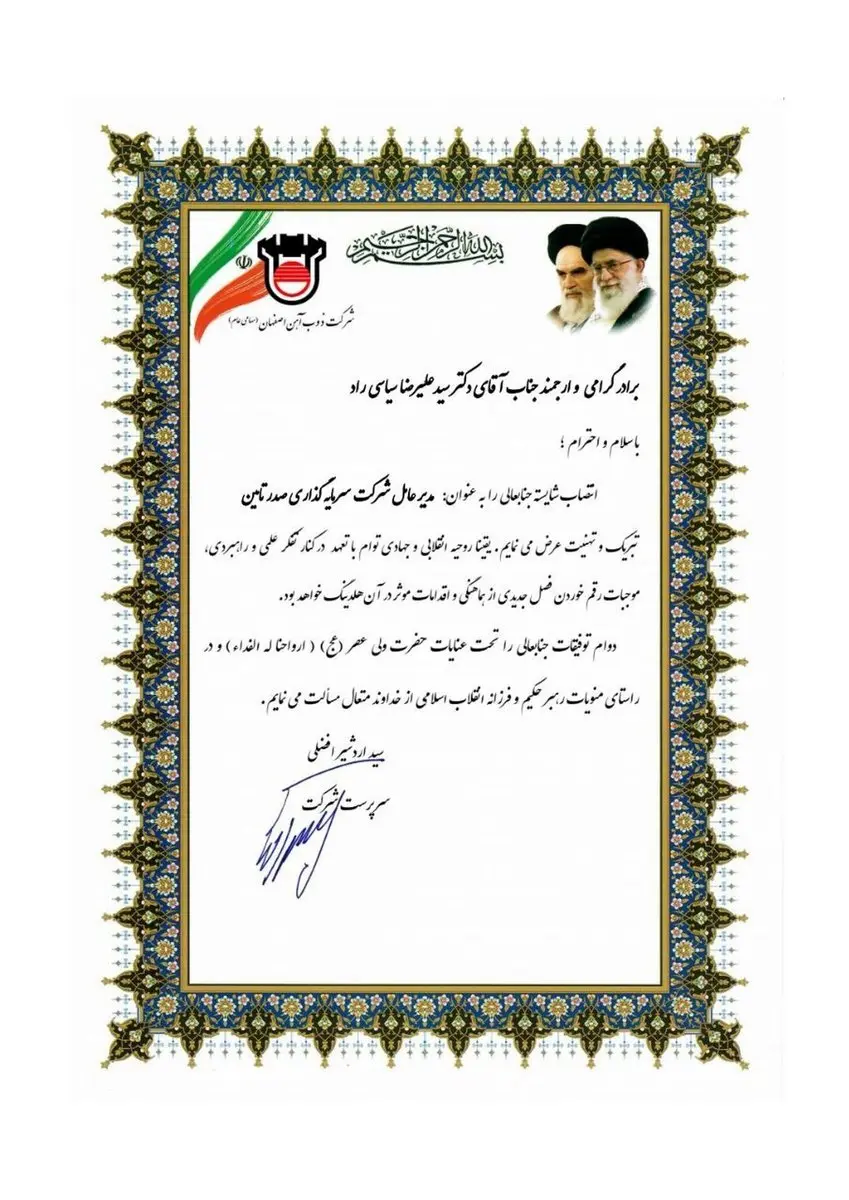 بسم الله الرحمن الرحیم
شرکت ذوب آهن اصفهان (سهامی عام)
برادر گرامی و ارجمند جناب آقای دکتر سید علیرضا سیاسی راد
باسلام و احترام ؛
انتصاب شایسته جنابعالی را به عنوان: مدیرعامل شرکت سرمایه گذاری صدر تامین
تبریک و تهنیت عرض می نمایم. یقینا روحیه انقلابی و جهادی توام با تعهد در کنار تفکر علمی و راهبردی،
موجبات رقم خوردن فصل جدیدی از هماهنگی و اقدامات موثر در آن هلدینگ خواهد بود.
دوام توفیقات جنابعالی را تحت عنایات حضرت ولی عصر (عج) ( ارواحنا له الفداء ) و در
راستای منویات رهبر حکیم و فرزانه انقلاب اسلامی از خداوند متعال مسألت می نمایم .
سید اردشیر افضلی
سرپرست شرکت